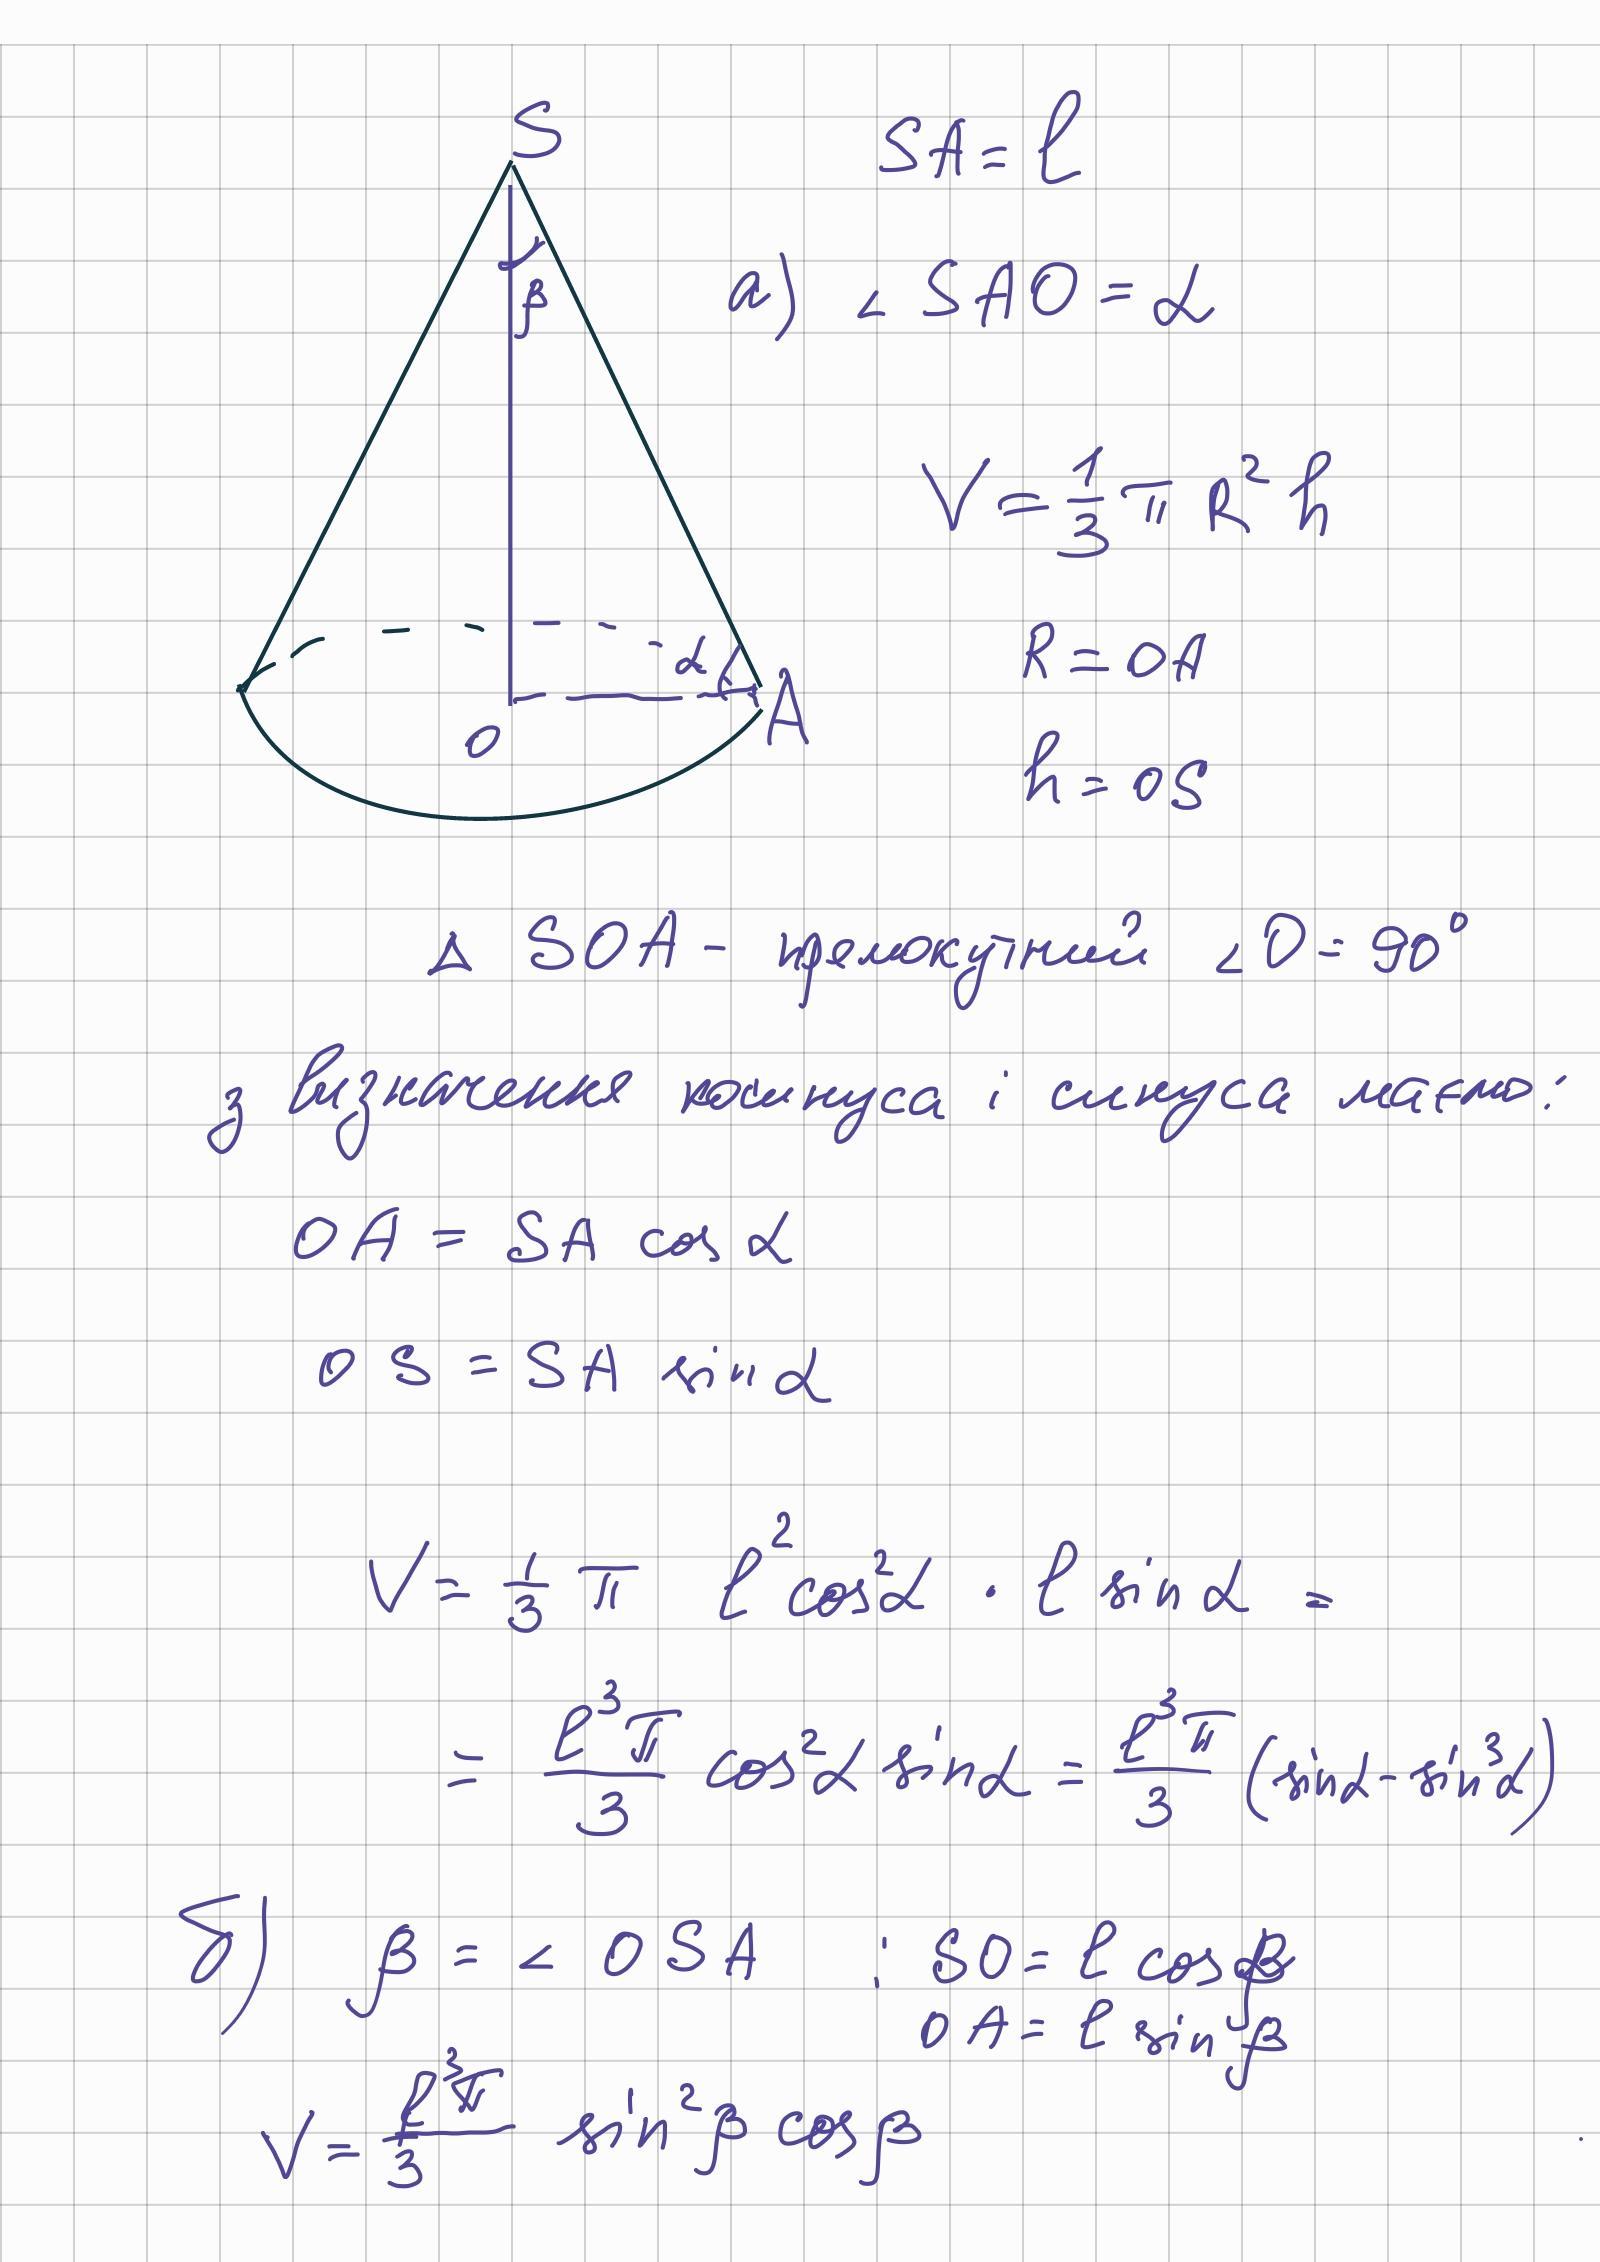 S
SA = l
β
а) ∠ SAO = α
V = 1/3 π R² h
R = OA
α
A
O
h = OS
Δ SOA - прямокутний ∠O = 90°
з визначення косинуса і синуса маємо:
OA = SA cos α
OS = SA sin α
V = 1/3 π l² cos²α · l sin α =
= l³π/3 cos²α sin α = l³π/3 (sin α - sin³α)
б) β = ∠ OSA : SO = l cos β
OA = l sin β
V = l³π/3 sin²β cos β